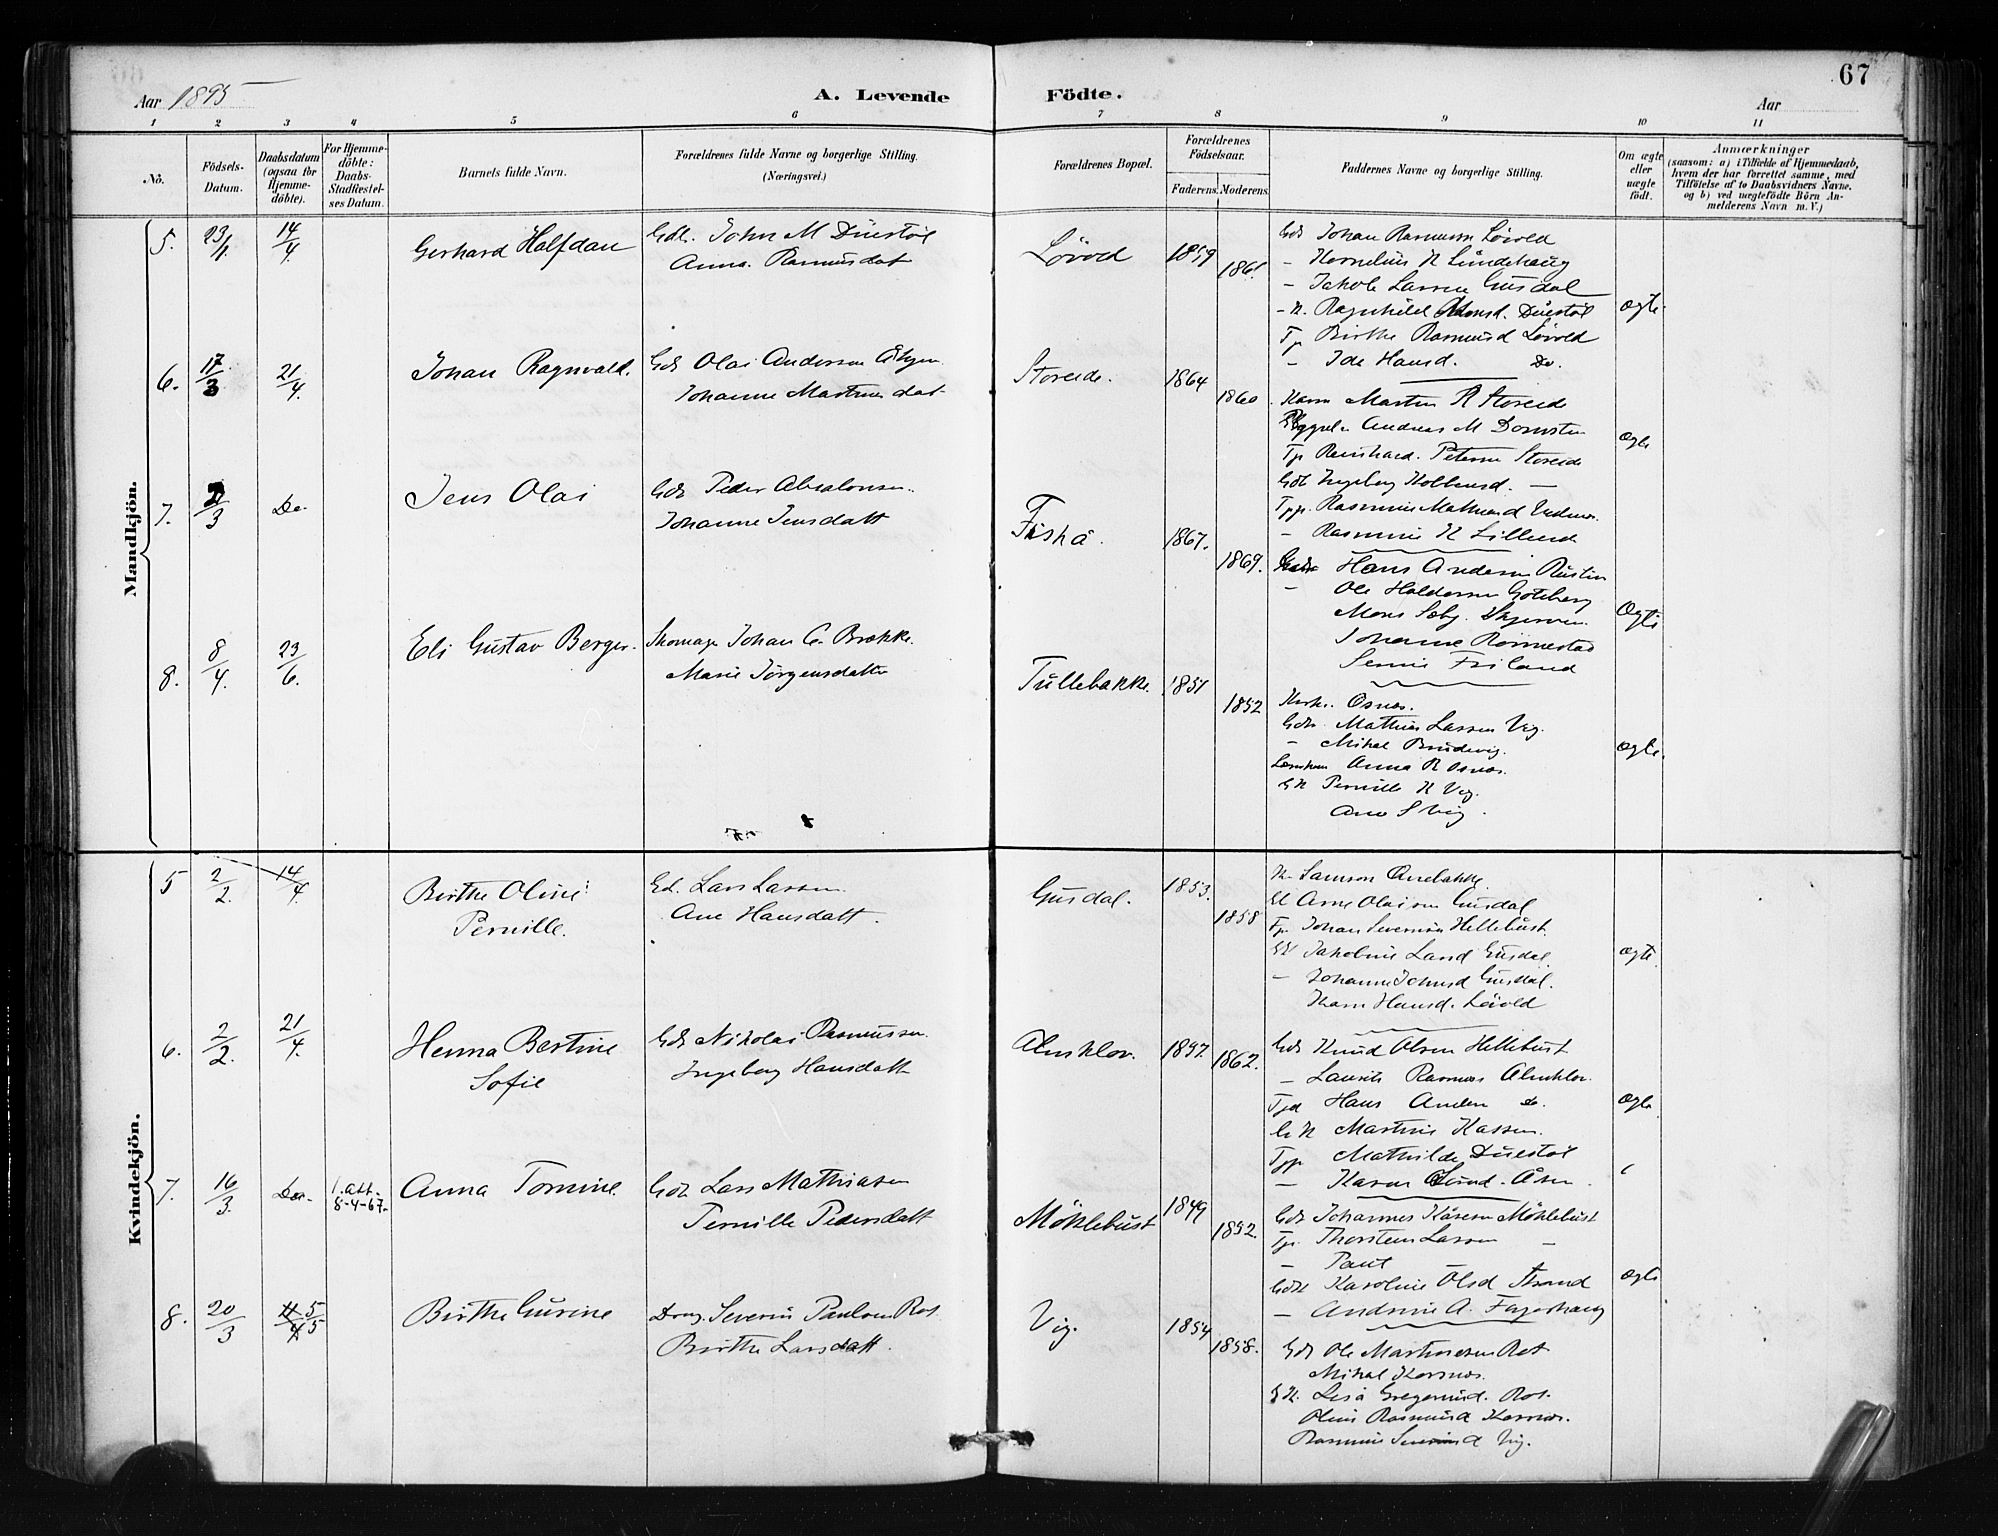 67
Aar 1895
A. Levende
Födte.
Aar
1 2 3 4 5 6 7 8 9 10 11
No.
Födsels-
Datum.
Daabsdatum
(ogsaa for
Hjemme-
döbte).
For Hjemme-
döbte:
Daabs-
Stadfæstel-
ses Datum.
Barnets fulde Navn.
Forældrenes fulde Navne og borgerlige Stilling.
(Næringsvei.)
Forældrenes Bopæl.
Forældrenes
Födselsaar.
Faderens.
Moderens.
Faddernes Navne og borgerlige Stilling.
Om ægte
eller
uægte
födt.
Anmærkninger
(saasom: a) i Tilfælde af Hjemmedaab,
hvem der har forrettet samme, med
Tilföielse af to Daabsvidners Navne.
og b) ved uægtefödte Börn An-
melderens Navn m. V.)
Mandkjön.
5. 23/1. 14/4. Gerhard Halfdan
Gdb. John M Duestøl
Anna Rasmusdat
Løvold 1859 1861.
Gdb Johan Rasmussen Løvold
- Kornelius K Lundehaug
- Jakob Larsen Gusdal
- K. Ragnhild Duestøl
Tp Birthe Rasmusd Løvold
- Ida Hansd. Do.
Ægte.
6. 17/3 21/4. Johan Ragnvald.
Gdb Olai Andersen
Johanne Martinusdat
Storeide. 1864 1860.
Martin R Storeide
Andreas M
Tp Reinhard Petersen Storeide
Gdb Ingeborg -
Tpp. Rasmus
- Rasmine K Lillend
Ægte
7. 2/3 Do. Jens Olai
Gdb Peder Absalonsen
Johanne Jensdatt
Fiskå. 1867. 1869.
Gdb Hans Andersen Rustin
- Ole Goteberg
Johanne Rønnestad
Friland
Ægte
8. 8/4. 23/6. Eli Gustav Berger.
Skomager Johan C. Brække.
Marie Jørgensdatter
Tullebakke. 1851 1852
Osnæs.
Gdb. Mathias Larsen Vig.
- Mikal Brudevig.
Anna R Osnæs.
GK Pernille K Vig.
Ane S Vig.
Ægte.
Kvindekjön.
5 2/2. 14/4. Birthe Oline
Pernille.
Gd. Lars Larsen
Ane Hansdatt.
Gusdal. 1853. 1858
K. Samson
Gd Arne Olaisen Gusdal
Tp Johan Severinsen Hellebust.
GK Jakobine Larsd Gusdal.
- Johanne Johnsd Gusdal.
Karen Hansd. Løvold
Ægte.
6. 2/2. 21/4. Henna Bertine
Sofie
Gdb Nikolai Rasmussen
Ingeborg Hansdatt
Almklov. 1857. 1862.
Gdb Knud Olsen Hellebust
- Laurits Rasmus Almklov.
Hans Anders do.
GK Martine
Tpp Mathilde Duestøl
- Karen
Ægte
7. 16/3. Do. 1. att.
8-4-67.
Anna Tomine.
Gdb Lars Mathiasen
Pernille Pedersdatt
Möklebust 1849 1852.
Gdb Johannes Möklebust
Tp. Thorstein Larsen -
- Paul -
Gdk Karoline Olsd Strand
- Andrine A. Fagerhaug
Ægte
8. 20/3 5/5
Birthe Gurine
Severin Paulsen Rot.
Birthe Larsdatt.
Vig. 1854 1858.
Gdb Ole Martinesen Rot
Mikal Korsnæs.
GK. Lisa Gregeriusd. Rot.
Oline Rasmusd Korsnæs.
Rasmine Severinsd Vig.